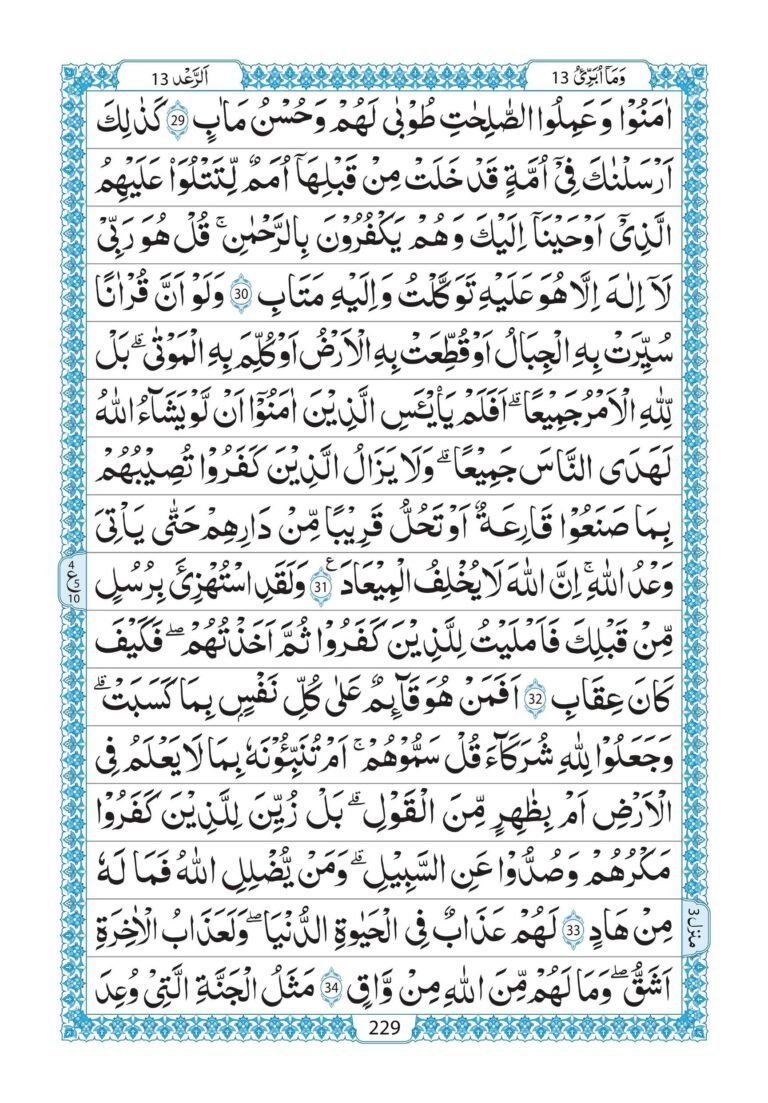 وَمَاۤ اُبَرِّئُ 13
اَلرَّعْد 13
اٰمَنُوْا وَ عَمِلُوا الصّٰلِحٰتِ طُوْبٰى لَهُمْ وَ حُسْنُ مَاٰبٍ 29 كَذٰلِكَ
اَرْسَلْنٰكَ فِیْۤ اُمَّةٍ قَدْ خَلَتْ مِنْ قَبْلِهَاۤ اُمَمٌ لِّتَتْلُوَا۟ عَلَیْهِمُ
الَّذِیْۤ اَوْحَیْنَاۤ اِلَیْكَ وَ هُمْ یَكْفُرُوْنَ بِالرَّحْمٰنِ ۚ قُلْ هُوَ رَبِّیْ
لَاۤ اِلٰهَ اِلَّا هُوَ عَلَیْهِ تَوَكَّلْتُ وَ اِلَیْهِ مَتَابِ 30 وَ لَوْ اَنَّ قُرْاٰنًا
سُیِّرَتْ بِهِ الْجِبَالُ اَوْ قُطِّعَتْ بِهِ الْاَرْضُ اَوْ كُلِّمَ بِهِ الْمَوْتٰى ؕ بَلْ
لِّلّٰهِ الْاَمْرُ جَمِیْعًا ؕ اَفَلَمْ یَایْـَٔسِ الَّذِیْنَ اٰمَنُوْۤا اَنْ لَّوْ یَشَآءُ اللّٰهُ
لَهَدَى النَّاسَ جَمِیْعًا ؕ وَ لَا یَزَالُ الَّذِیْنَ كَفَرُوْا تُصِیْبُهُمْ
بِمَا صَنَعُوْا قَارِعَةٌ اَوْ تَحُلُّ قَرِیْبًا مِّنْ دَارِهِمْ حَتّٰى یَاْتِیَ
وَعْدُ اللّٰهِ ؕ اِنَّ اللّٰهَ لَا یُخْلِفُ الْمِیْعَادَ 31 ع وَ لَقَدِ اسْتُهْزِئَ بِرُسُلٍ
4 ع 5 10
مِّنْ قَبْلِكَ فَاَمْلَیْتُ لِلَّذِیْنَ كَفَرُوْا ثُمَّ اَخَذْتُهُمْ ۫ فَكَیْفَ
كَانَ عِقَابِ 32 اَفَمَنْ هُوَ قَآىِٕمٌ عَلٰى كُلِّ نَفْسٍۭ بِمَا كَسَبَتْ ۚ
وَ جَعَلُوْا لِلّٰهِ شُرَكَآءَ ؕ قُلْ سَمُّوْهُمْ ؕ اَمْ تُنَبِّـُٔوْنَهٗ بِمَا لَا یَعْلَمُ فِی
الْاَرْضِ اَمْ بِظَاهِرٍ مِّنَ الْقَوْلِ ؕ بَلْ زُیِّنَ لِلَّذِیْنَ كَفَرُوْا
مَكْرُهُمْ وَ صُدُّوْا عَنِ السَّبِیْلِ ؕ وَ مَنْ یُّضْلِلِ اللّٰهُ فَمَا لَهٗ
مِنْ هَادٍ 33 لَهُمْ عَذَابٌ فِی الْحَیٰوةِ الدُّنْیَا وَ لَعَذَابُ الْاٰخِرَةِ
منزل 3
اَشَقُّ ۚ وَ مَا لَهُمْ مِّنَ اللّٰهِ مِنْ وَّاقٍ 34 مَثَلُ الْجَنَّةِ الَّتِیْ وُعِدَ
229